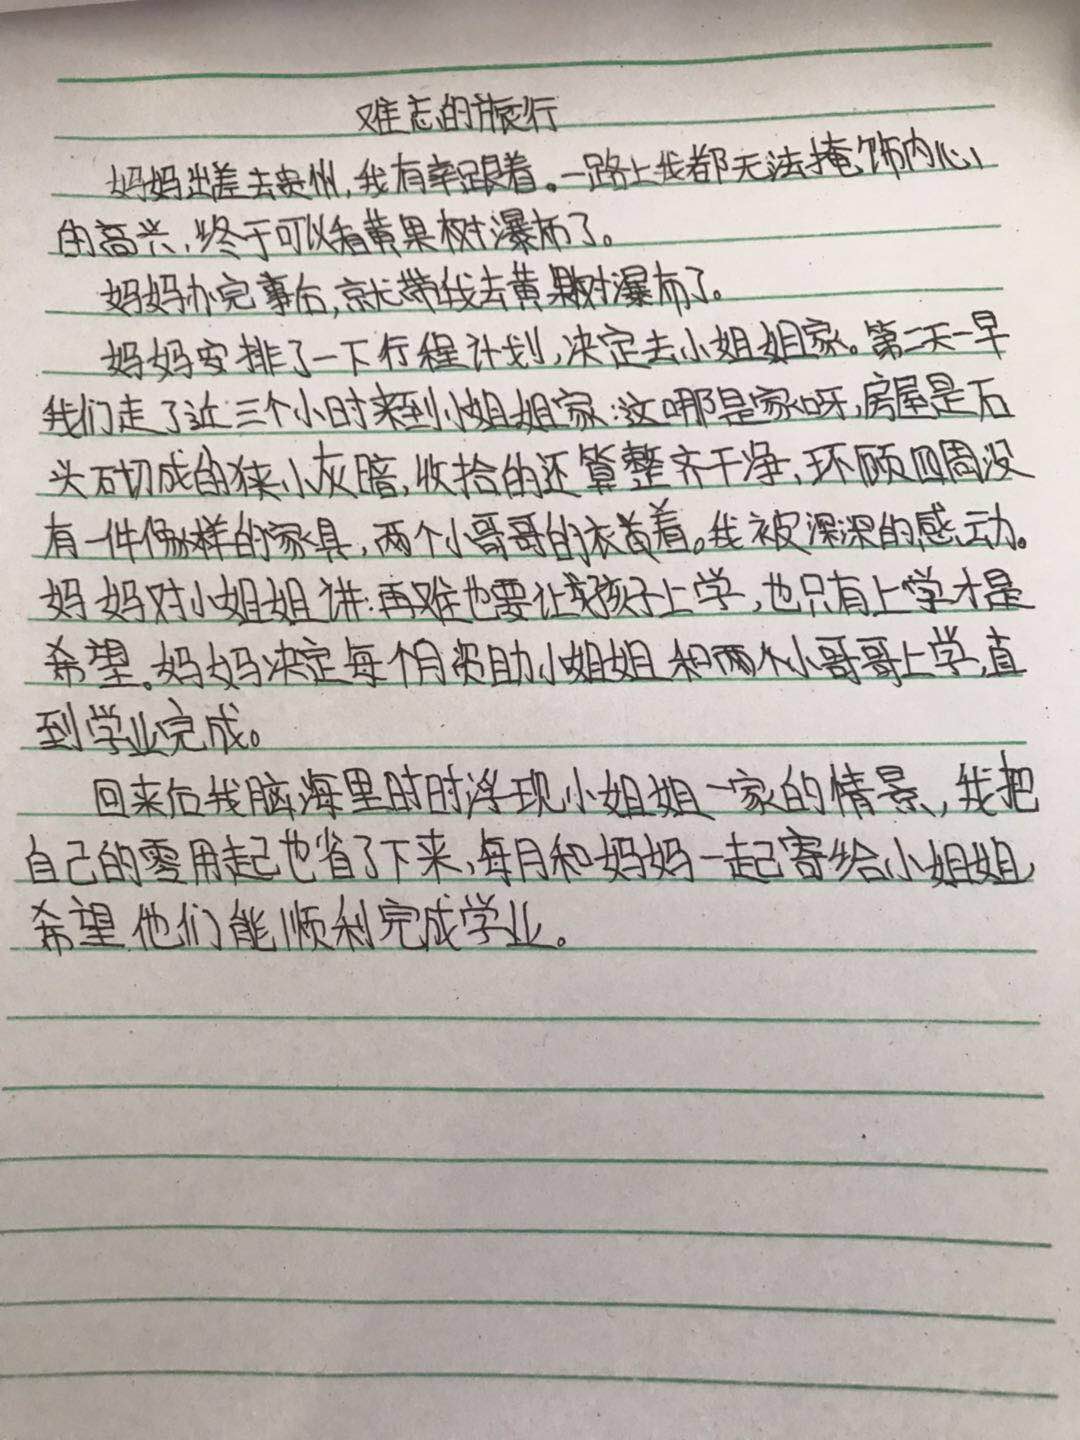 难忘的旅行
妈妈出差去贵州,我有幸跟着。一路上我都无法掩饰内心
的高兴,终于可以看黄果树瀑布了。
妈妈办完事后,就带我去黄果树瀑布了。
妈妈安排了一下行程计划,决定去小姐姐家。第二天一早
我们走了近三个小时来到小姐姐家:这哪是家呀,房屋是石
头石切成的狭小灰暗,收拾的还算整齐干净,环顾四周没
有一件像样的家具,两个小哥哥的衣着。我被深深的感动。
妈妈对小姐姐讲:再难也要让孩子上学,也只有上学才是
希望。妈妈决定每个月资助小姐姐和两个小哥哥上学,直
到学业完成。
回来后我脑海里时时浮现小姐姐一家的情景,我把
自己的零用起也省了下来,每月和妈妈一起寄给小姐姐,
希望他们能顺利完成学业。